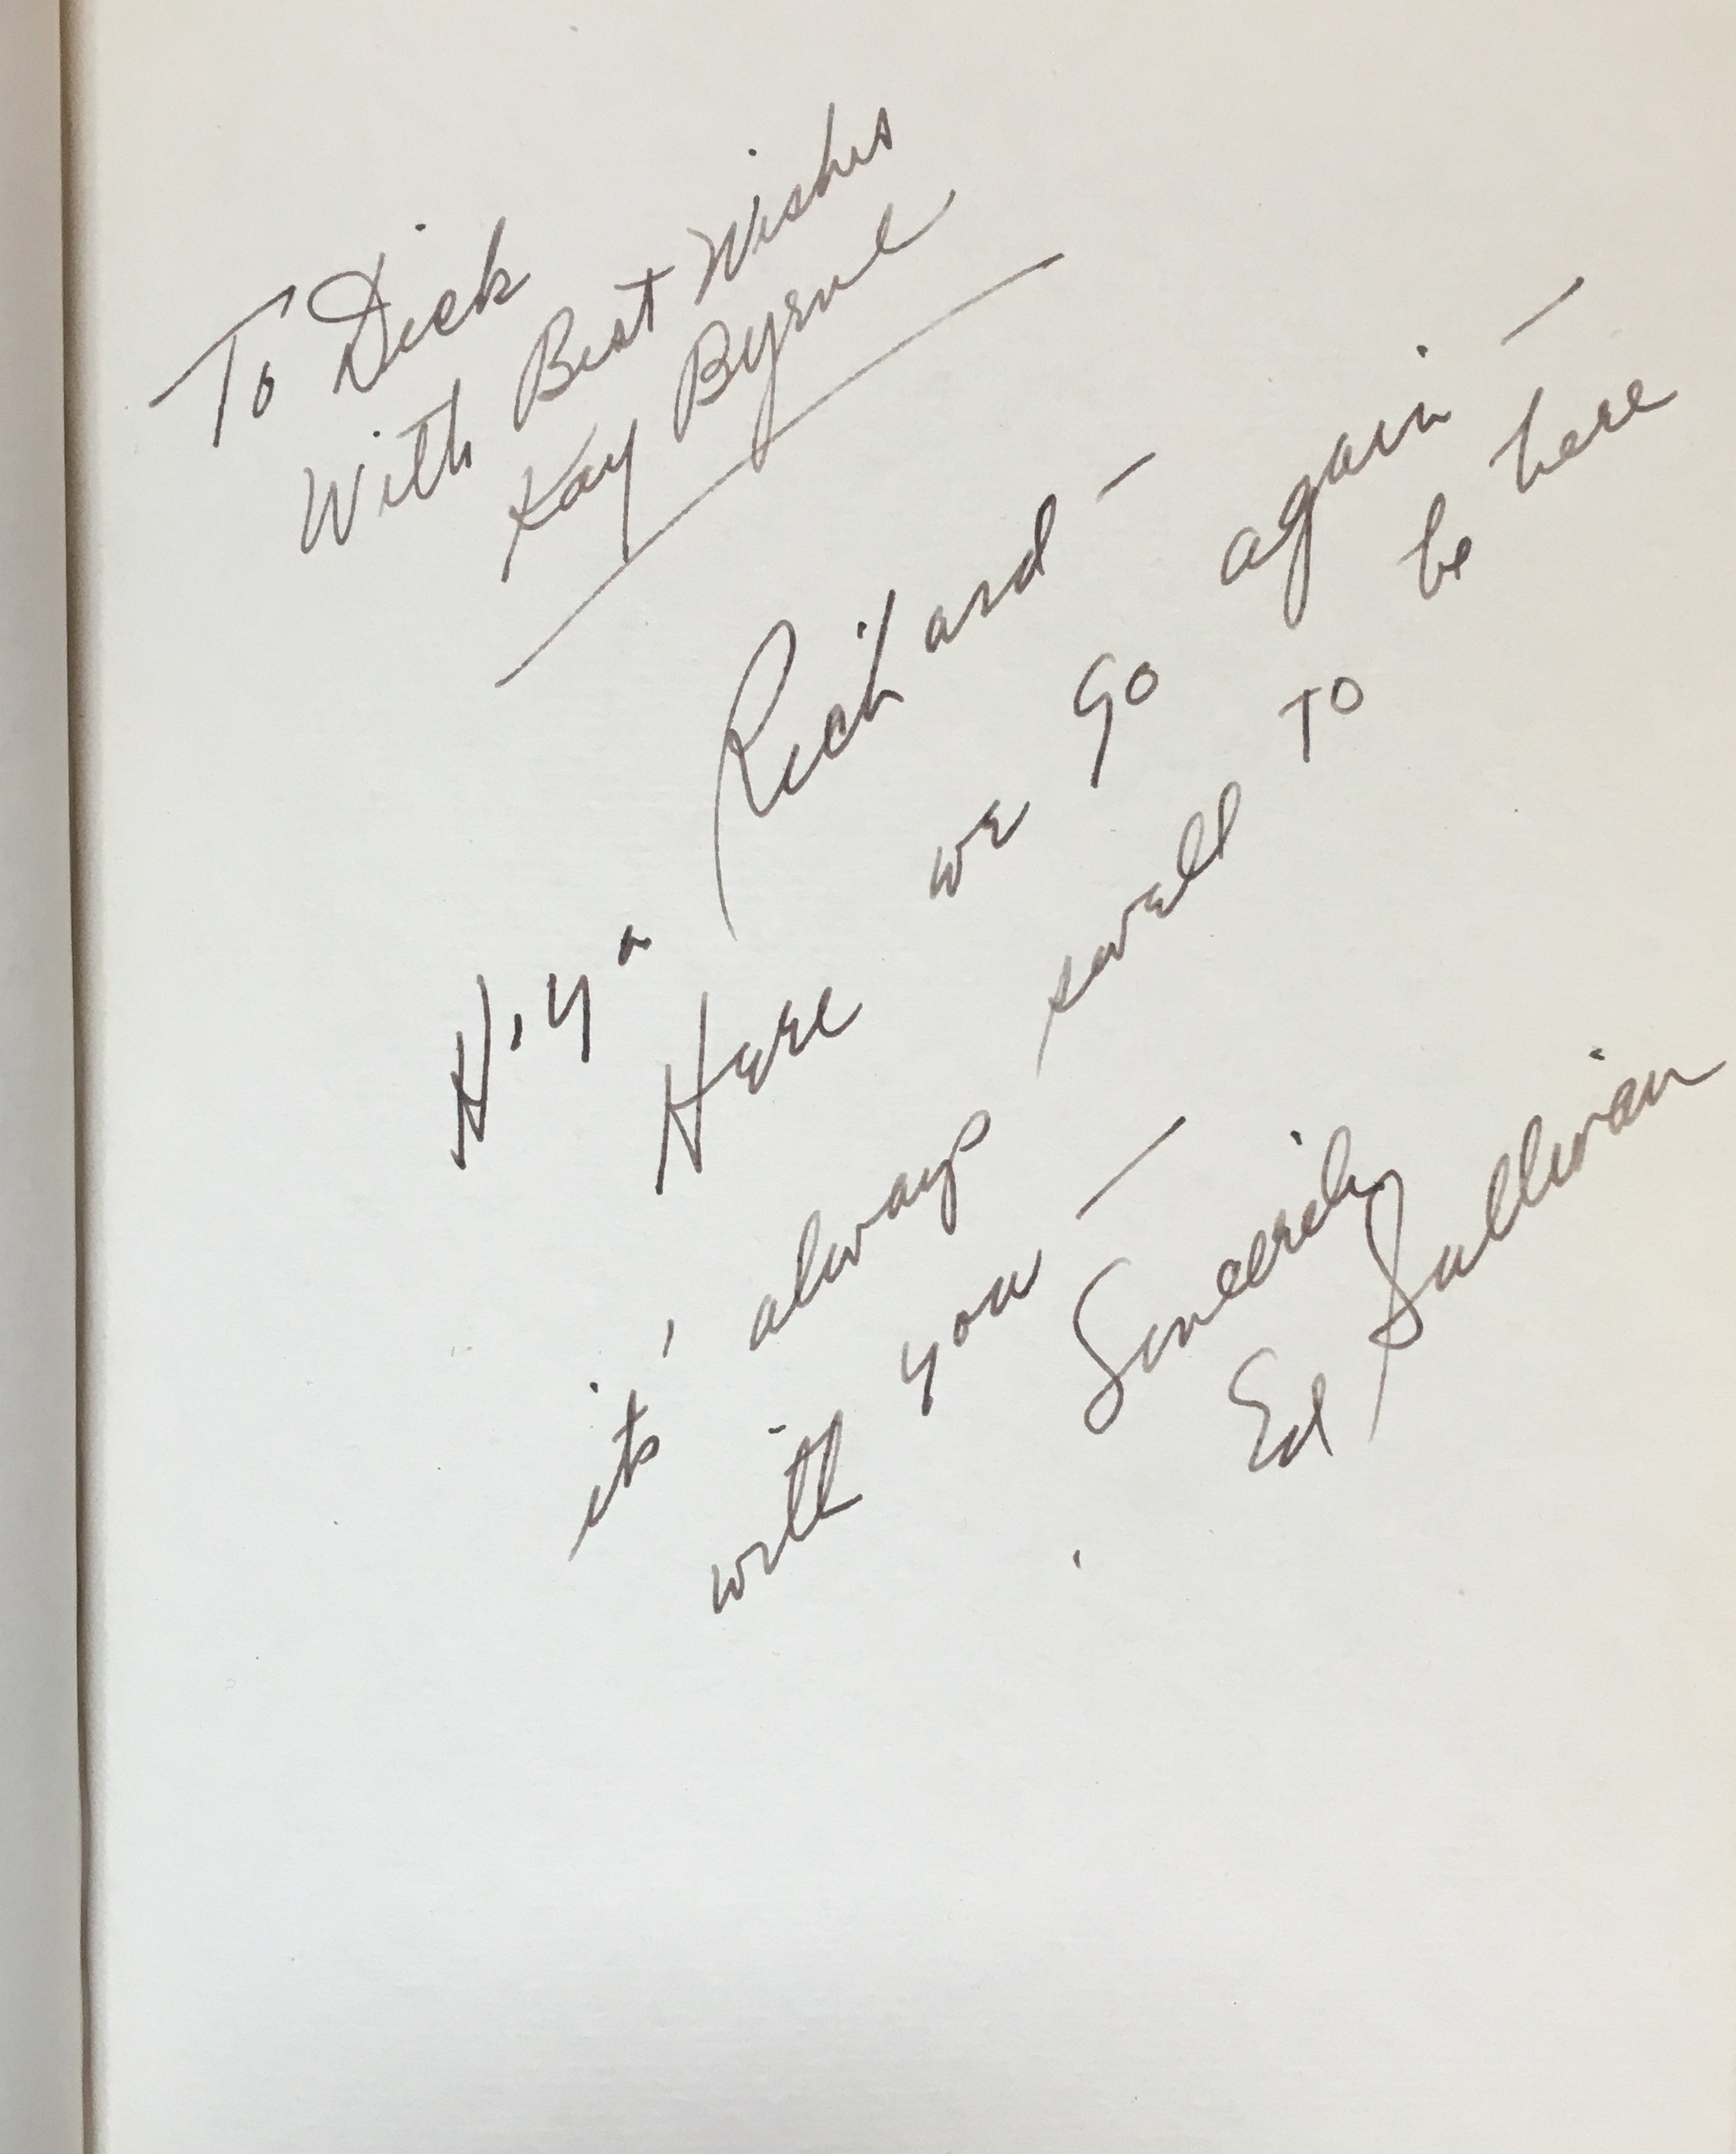 To Dick
With Best Wishes
Kay Byrne
Hiya Richard —
Here we go again —
it's always swell to be here
with you —
Sincerely
Ed Sullivan